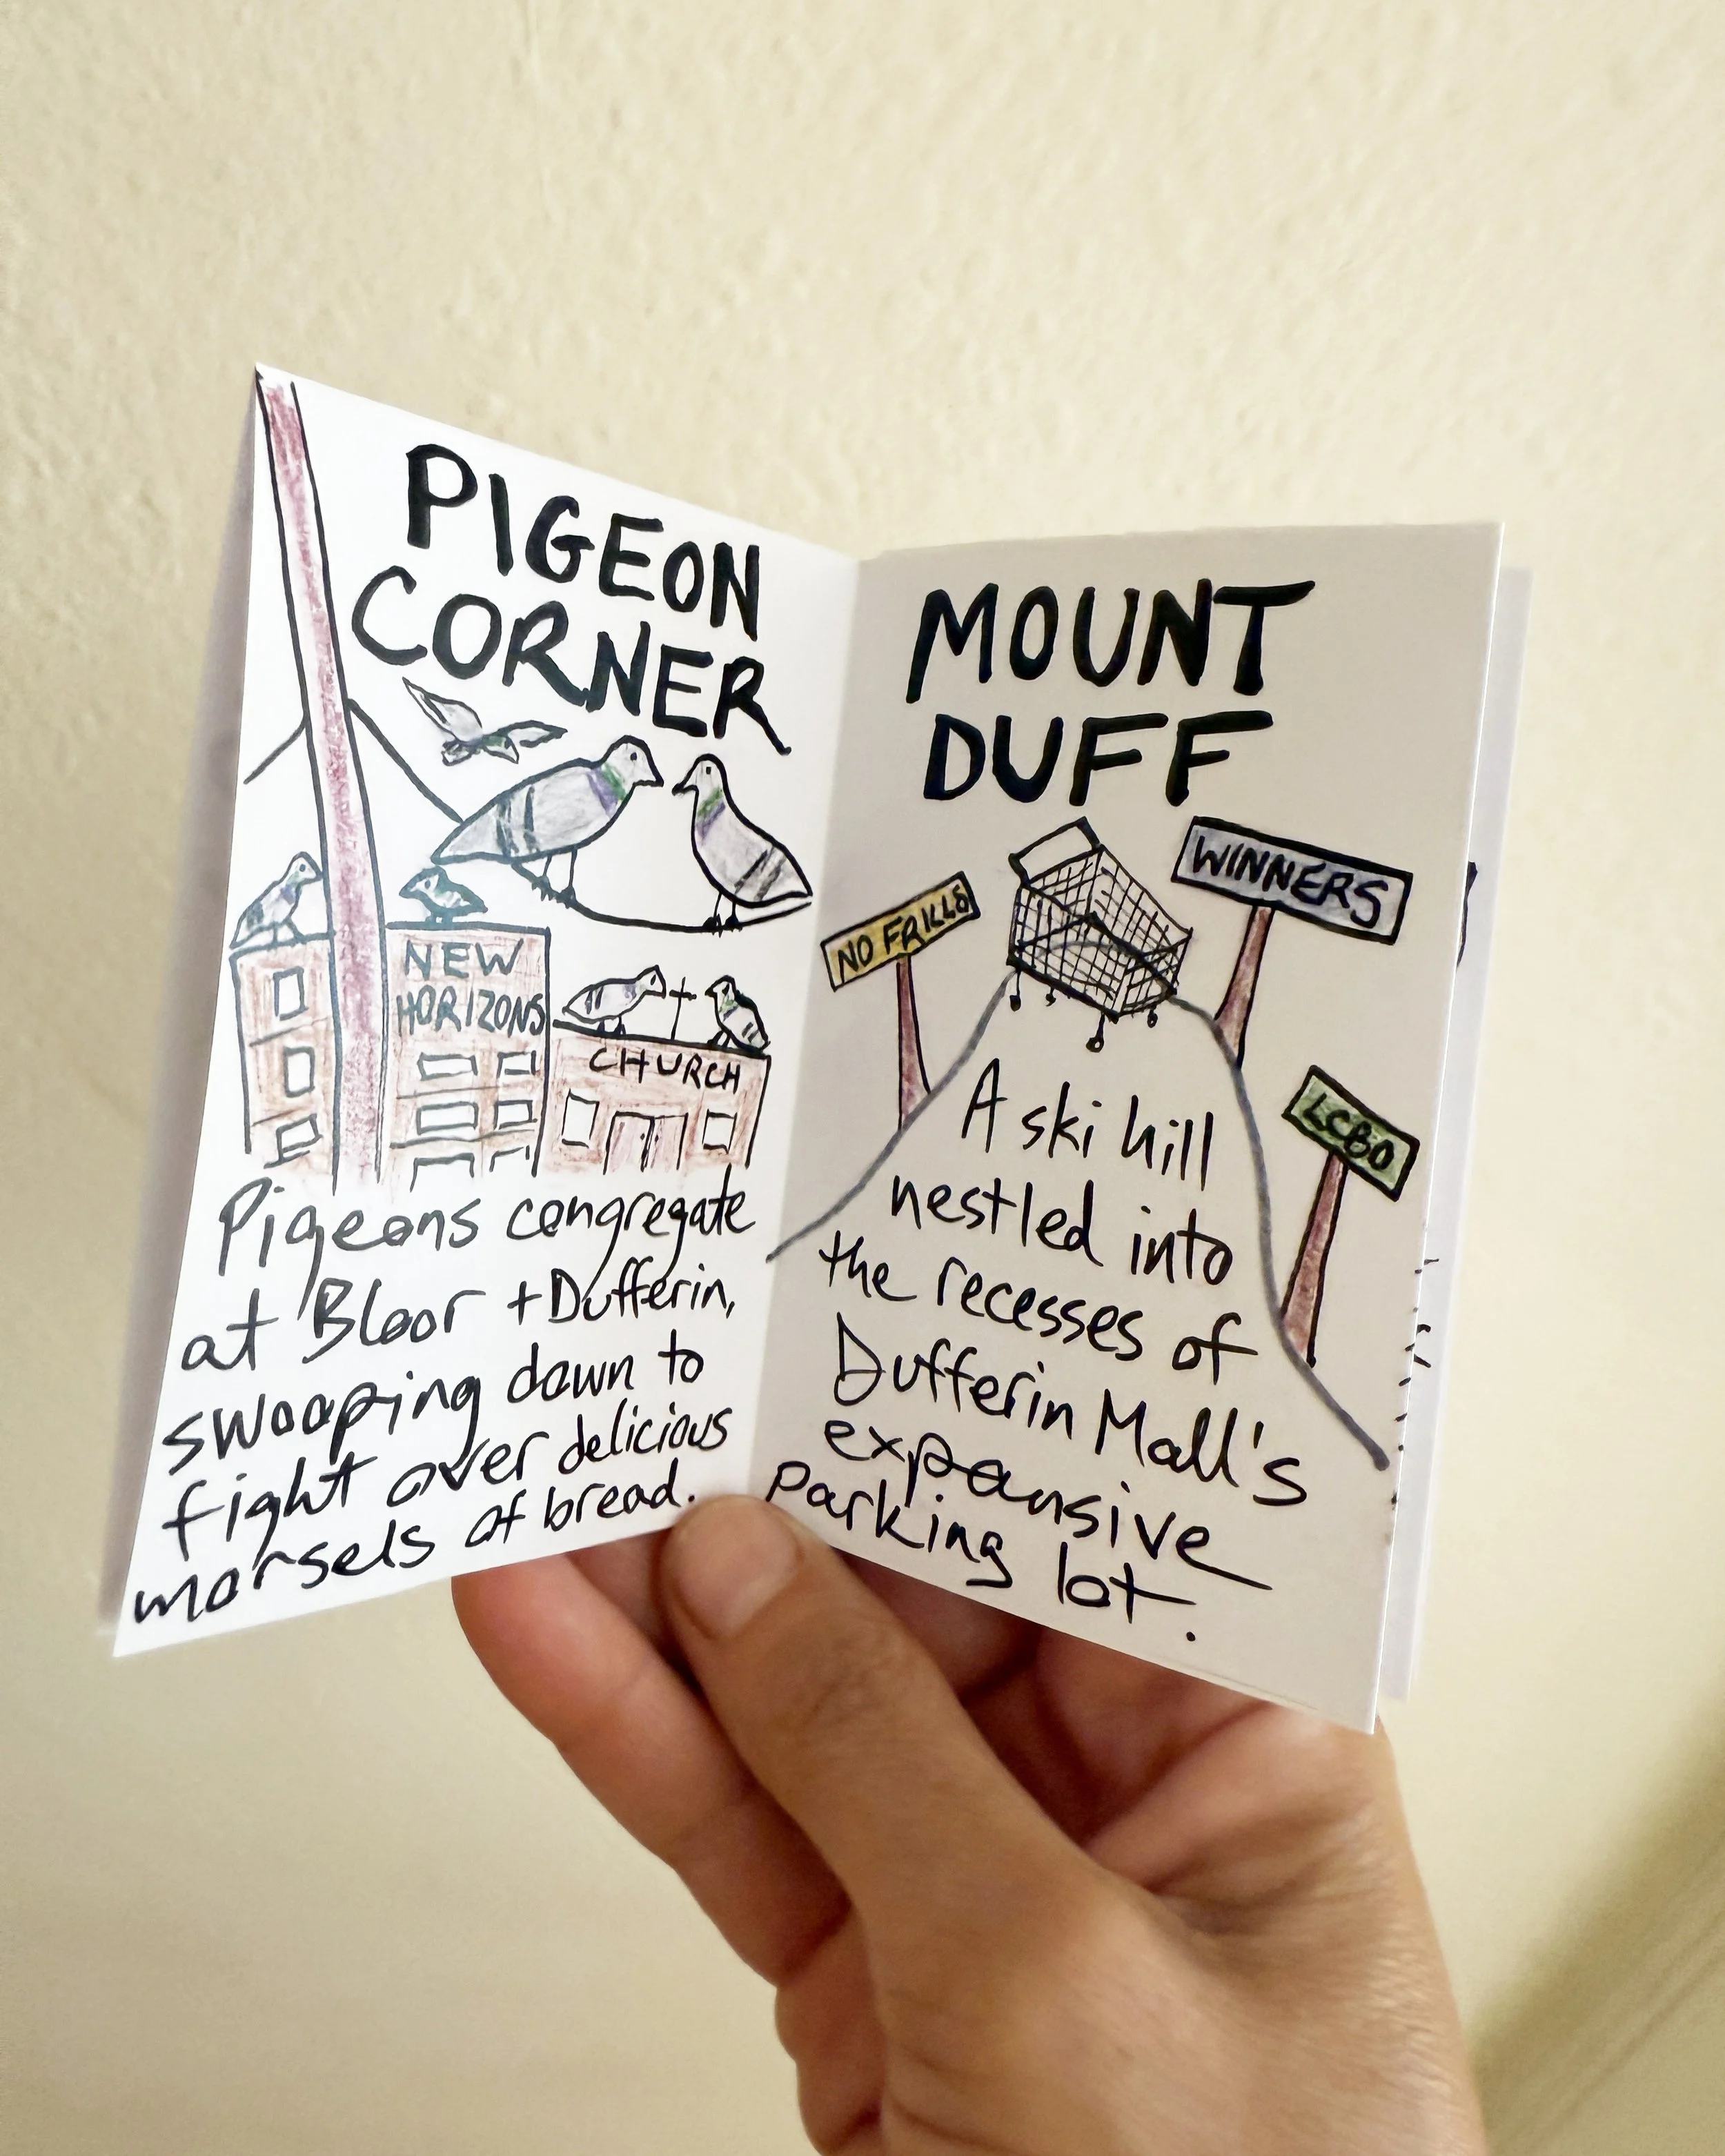 PIGEON
CORNER
NEW
HORIZONS
CHURCH
Pigeons congregate
at Bloor + Dufferin,
swooping down to
fight over delicious
morsels of bread.
MOUNT
DUFF
NO FRILLS
WINNERS
LCBO
A ski hill
nestled into
the recesses of
Dufferin Mall's
expansive
parking lot.